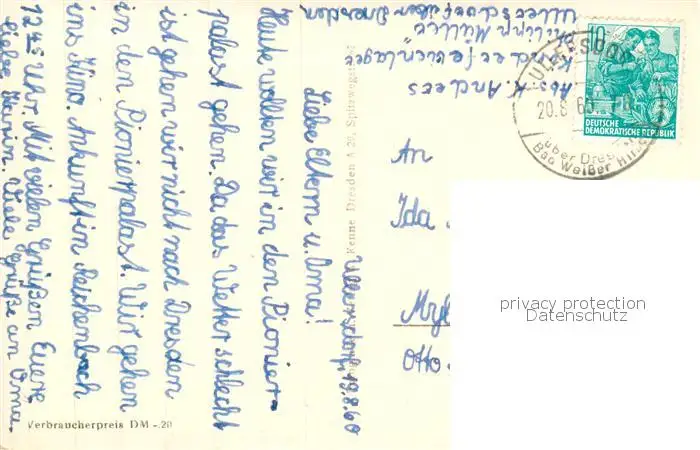 Ullersdorf, 19.8.60
Liebe Eltern u. Oma!
Heute wollten wir in den Pionier-
palast gehen. Da das Wetter schlecht
ist gehen wir nicht nach Dresden
in den Pionierpalast. Wir gehen
ins Kino. Ankunft in Reichenbach
12 45 Uhr. Mit vielen Grüßen Euere
Viele Grüße an Oma.
Abs. K. Anders
Kinderferienlager
"Philipp Müller"
Ullersdorf über Dresden
10
DEUTSCHE
DEMOKRATISCHE REPUBLIK
ULLERSDORF
20.8.60
über Dresden
Bad Weißer Hirsch
An
Ida
Otto
Dresden A 20, Spitzwegstr.
Verbraucherpreis DM -.20
privacy protection
Datenschutz